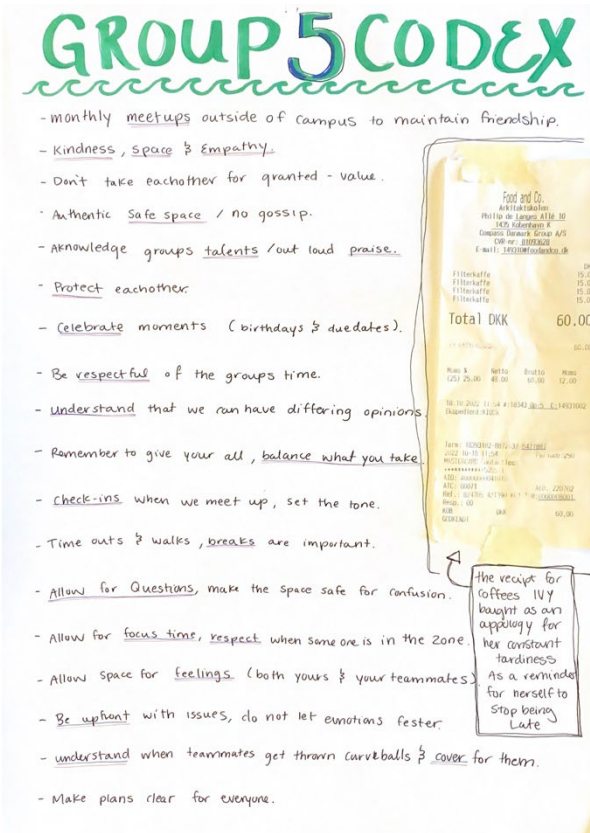 GROUP 5 CODEX
- monthly meetups outside of campus to maintain friendship.
- Kindness, space & Empathy.
- Don't take eachother for granted - value.
- Authentic Safe space / no gossip.
- Aknowledge groups talents / out loud praise.
- Protect eachother.
- Celebrate moments (birthdays & duedates).
- Be respectful of the groups time.
- understand that we can have differing opinions.
- Remember to give your all, balance what you take.
- Check-ins when we meet up, set the tone.
- Time outs & walks, breaks are important.
- Allow for Questions, make the space safe for confusion.
- Allow for focus time, respect when some one is in the zone.
- Allow space for feelings (both yours & your teammates)
- Be upfront with issues, do not let emotions fester.
- understand when teammates get thrown curveballs & cover for them.
- Make plans clear for everyone.
Food and Co.
Arkitektskolen
Philip de Langes Allé 10
1435 København K
Compass Danmark Group A/S
CVR-nr: 01093628
E-mail:
Filterkaffe 15.0
Filterkaffe 15.0
Filterkaffe 15.0
Filterkaffe 15.0
Total DKK 60.00
Moms % Netto Brutto Moms
(25) 25.00 48.00 60.00 12.00
18.10.2022 11:54
2022-10-18 11:54
KØB DKK 60,00
GODKENDT
the reciept for
coffees IVY
baught as an
appology for
her constant
tardiness
As a reminder
for herself to
Stop being
Late